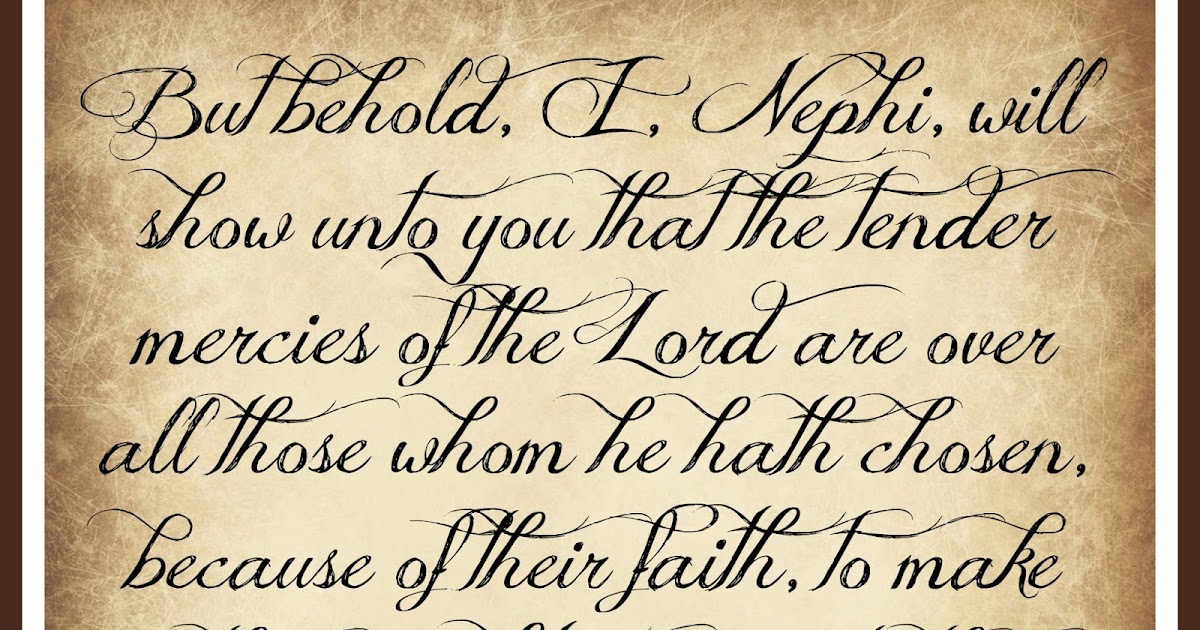 But behold, I, Nephi, will
show unto you that the tender
mercies of the Lord are over
all those whom he hath chosen,
because of their faith, to make